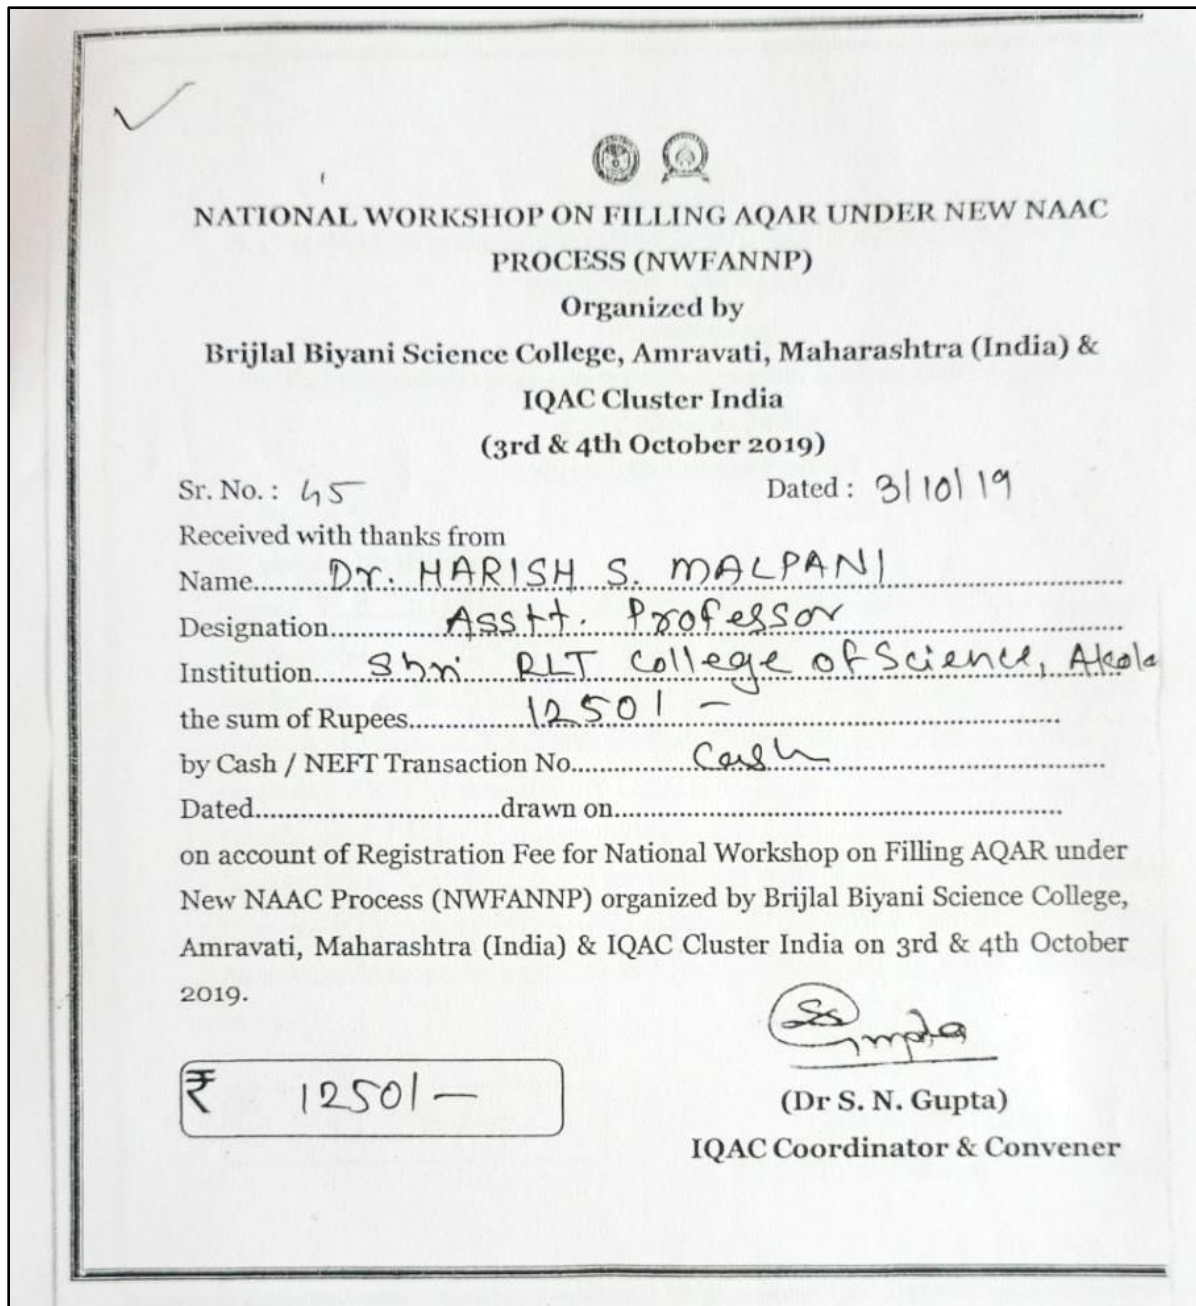 NATIONAL WORKSHOP ON FILLING AQAR UNDER NEW NAAC
PROCESS (NWFANNP)
Organized by
Brijlal Biyani Science College, Amravati, Maharashtra (India) &
IQAC Cluster India
(3rd & 4th October 2019)
Sr. No. : 45 Dated : 3/10/19
Received with thanks from
Name.....Dr. HARISH S. MALPANI.....
Designation.....Asstt. Professor.....
Institution.....Shri RLT College of Science, Akola
the sum of Rupees.....1250/-.....
by Cash / NEFT Transaction No.....Cash.....
Dated.....drawn on.....
on account of Registration Fee for National Workshop on Filling AQAR under
New NAAC Process (NWFANNP) organized by Brijlal Biyani Science College,
Amravati, Maharashtra (India) & IQAC Cluster India on 3rd & 4th October
2019.
SGupta
₹ 1250/-
(Dr S. N. Gupta)
IQAC Coordinator & Convener